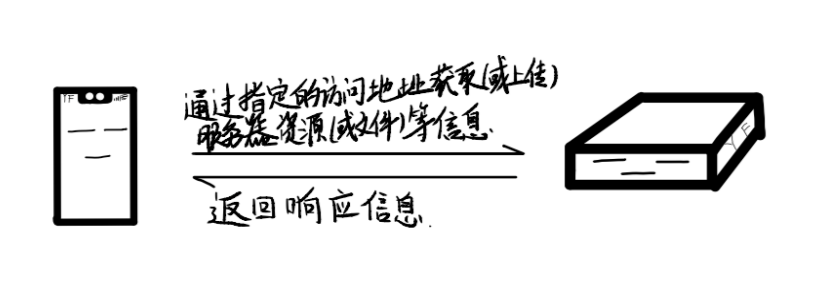 YF
通过指定的访问地址获取(或上传)
服务器资源(或文件)等信息.
返回响应信息.
YF